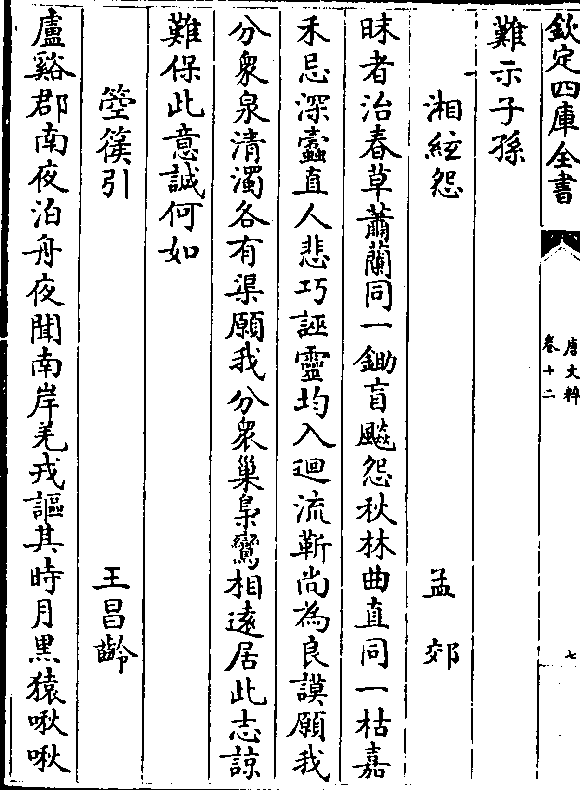 欽定四庫全書
唐文粹
卷十二
七
難示子孫
湘絃怨　孟郊
昧者治春草蕭蘭同一鋤盲飈怨秋林曲直同一枯嘉
禾忌深蠹直人悲巧誣靈均入迴流靳尚為良謨願我
分衆泉清濁各有渠願我分衆巢梟鸞相遠居此志諒
難保此意誠何如
箜篌引　王昌齡
盧谿郡南夜泊舟夜聞南岸羌戎謳其時月黒猿啾啾